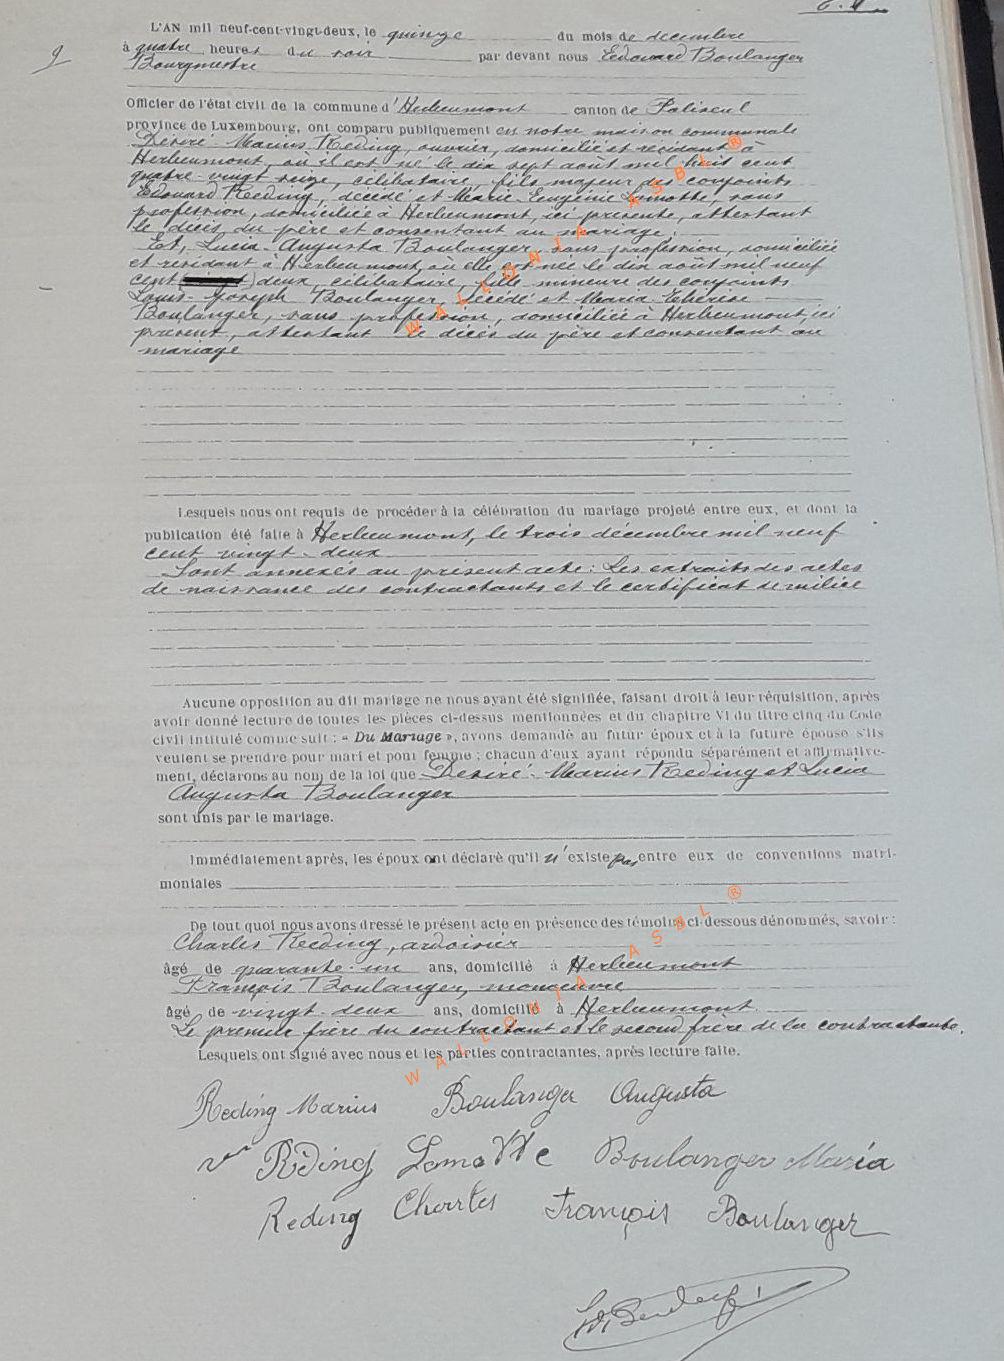 9
L'AN mil neuf-cent-vingt-deux, le quinze du mois de décembre
à quatre heures du soir par devant nous Edouard Boulanger
Bourgmestre
Officier de l'état civil de la commune d'Herbeumont canton de Paliseul
province de Luxembourg, ont comparu publiquement en notre maison communale
Désiré-Marius Reding, ouvrier, domicilié et résidant à
Herbeumont, où il est né le dix sept août mil huit cent
quatre-vingt seize, célibataire, fils majeur des conjoints
Edouard Reding, décédé et Marie Eugénie Lamotte, sans
profession, domiciliée à Herbeumont, ici présente, attestant
le décès du père et consentant au mariage;
Et, Lucia-Augusta Boulanger, sans profession, domiciliée
et résidant à Herbeumont, où elle est née le dix août mil neuf
cent deux, célibataire, fille mineure des conjoints
Louis-Joseph Boulanger, décédé et Maria-Thérèse
Boulanger, sans profession, domiciliée à Herbeumont, ici
présent, attestant le décès du père et consentant au
mariage
Lesquels nous ont requis de procéder à la célébration du mariage projeté entre eux, et dont la
publication été faite à Herbeumont, le trois décembre mil neuf
cent vingt-deux
Sont annexés au présent acte: Les extraits des actes
de naissance des contractants et le certificat de milice
Aucune opposition au dit mariage ne nous ayant été signifiée, faisant droit à leur réquisition, après
avoir donné lecture de toutes les pièces ci-dessus mentionnées et du chapitre VI du titre cinq du Code
civil intitulé comme suit : « Du Mariage », avons demandé au futur époux et à la future épouse s'ils
veulent se prendre pour mari et pour femme ; chacun d'eux ayant répondu séparément et affirmative-
ment, déclarons au nom de la loi que Désiré-Marius Reding et Lucia
Augusta Boulanger
sont unis par le mariage.
Immédiatement après, les époux ont déclaré qu'il n'existe pas entre eux de conventions matri-
moniales
De tout quoi nous avons dressé le présent acte en présence des témoins ci-dessous dénommés, savoir :
Charles Reding, ardoisier
âgé de quarante-un ans, domicilié à Herbeumont
François Boulanger, manœuvre
âgé de vingt-deux ans, domicilié à Herbeumont
Le premier frère du contractant et le second frère de la contractante.
Lesquels ont signé avec nous et les parties contractantes, après lecture faite.
Reding Marius Boulanger Augusta
Reding Lamotte Boulanger Maria
Reding Charles François Boulanger
WALLONIA ASBL ®
WALLONIA ASBL ®